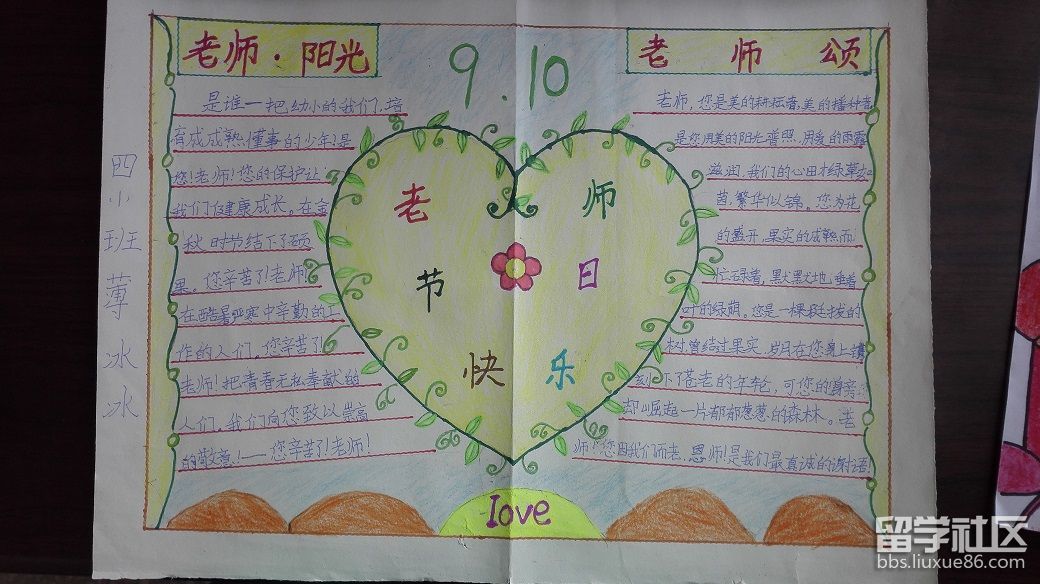 四小班薄冰冰
老师·阳光
是谁一把幼小的我们，培
育成成熟懂事的少年！是
您！老师！您的保护让
我们健康成长。在金
秋时节结下了硕
果。您辛苦了！老师！
在酷暑严寒中辛勤的工
作的人们。您辛苦了！
老师！把青春无私奉献给
人们。我们向您致以崇高
的敬意！——您辛苦了！老师！
9.10
老师
节日
快乐
love
老师颂
老师，您是美的耕耘者，美的播种者
是您用美的阳光普照，用爱的雨露
滋润，我们的心田才绿草如
茵，繁华似锦。您为花
的盛开，果实的成熟而
忙碌着，默默地垂着
叶的绿荫。您是一棵挺拔的
树曾结过果实，岁月在您身上镌
刻下了苍老的年轮，可您的身旁
却崛起一片郁郁葱葱的森林。老
师！您因我们而老，恩师！是我们最真诚的谢语！
留学社区
bbs.liuxue86.com